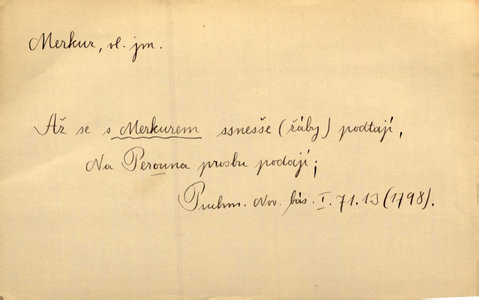 Merkur, vl. jm.
Až se s Merkurem ssnesše (žáby) podtají,
Na Perouna prosbu podají;
Puchm. Nov. bás. I. 71.13 (1798).